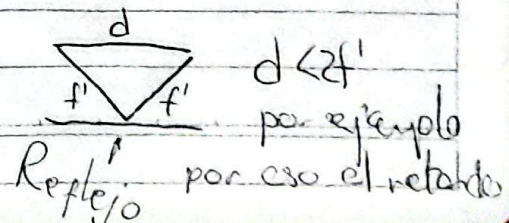 d
f' f' d<2f'
por ejemplo
Reflejo por eso el retardo